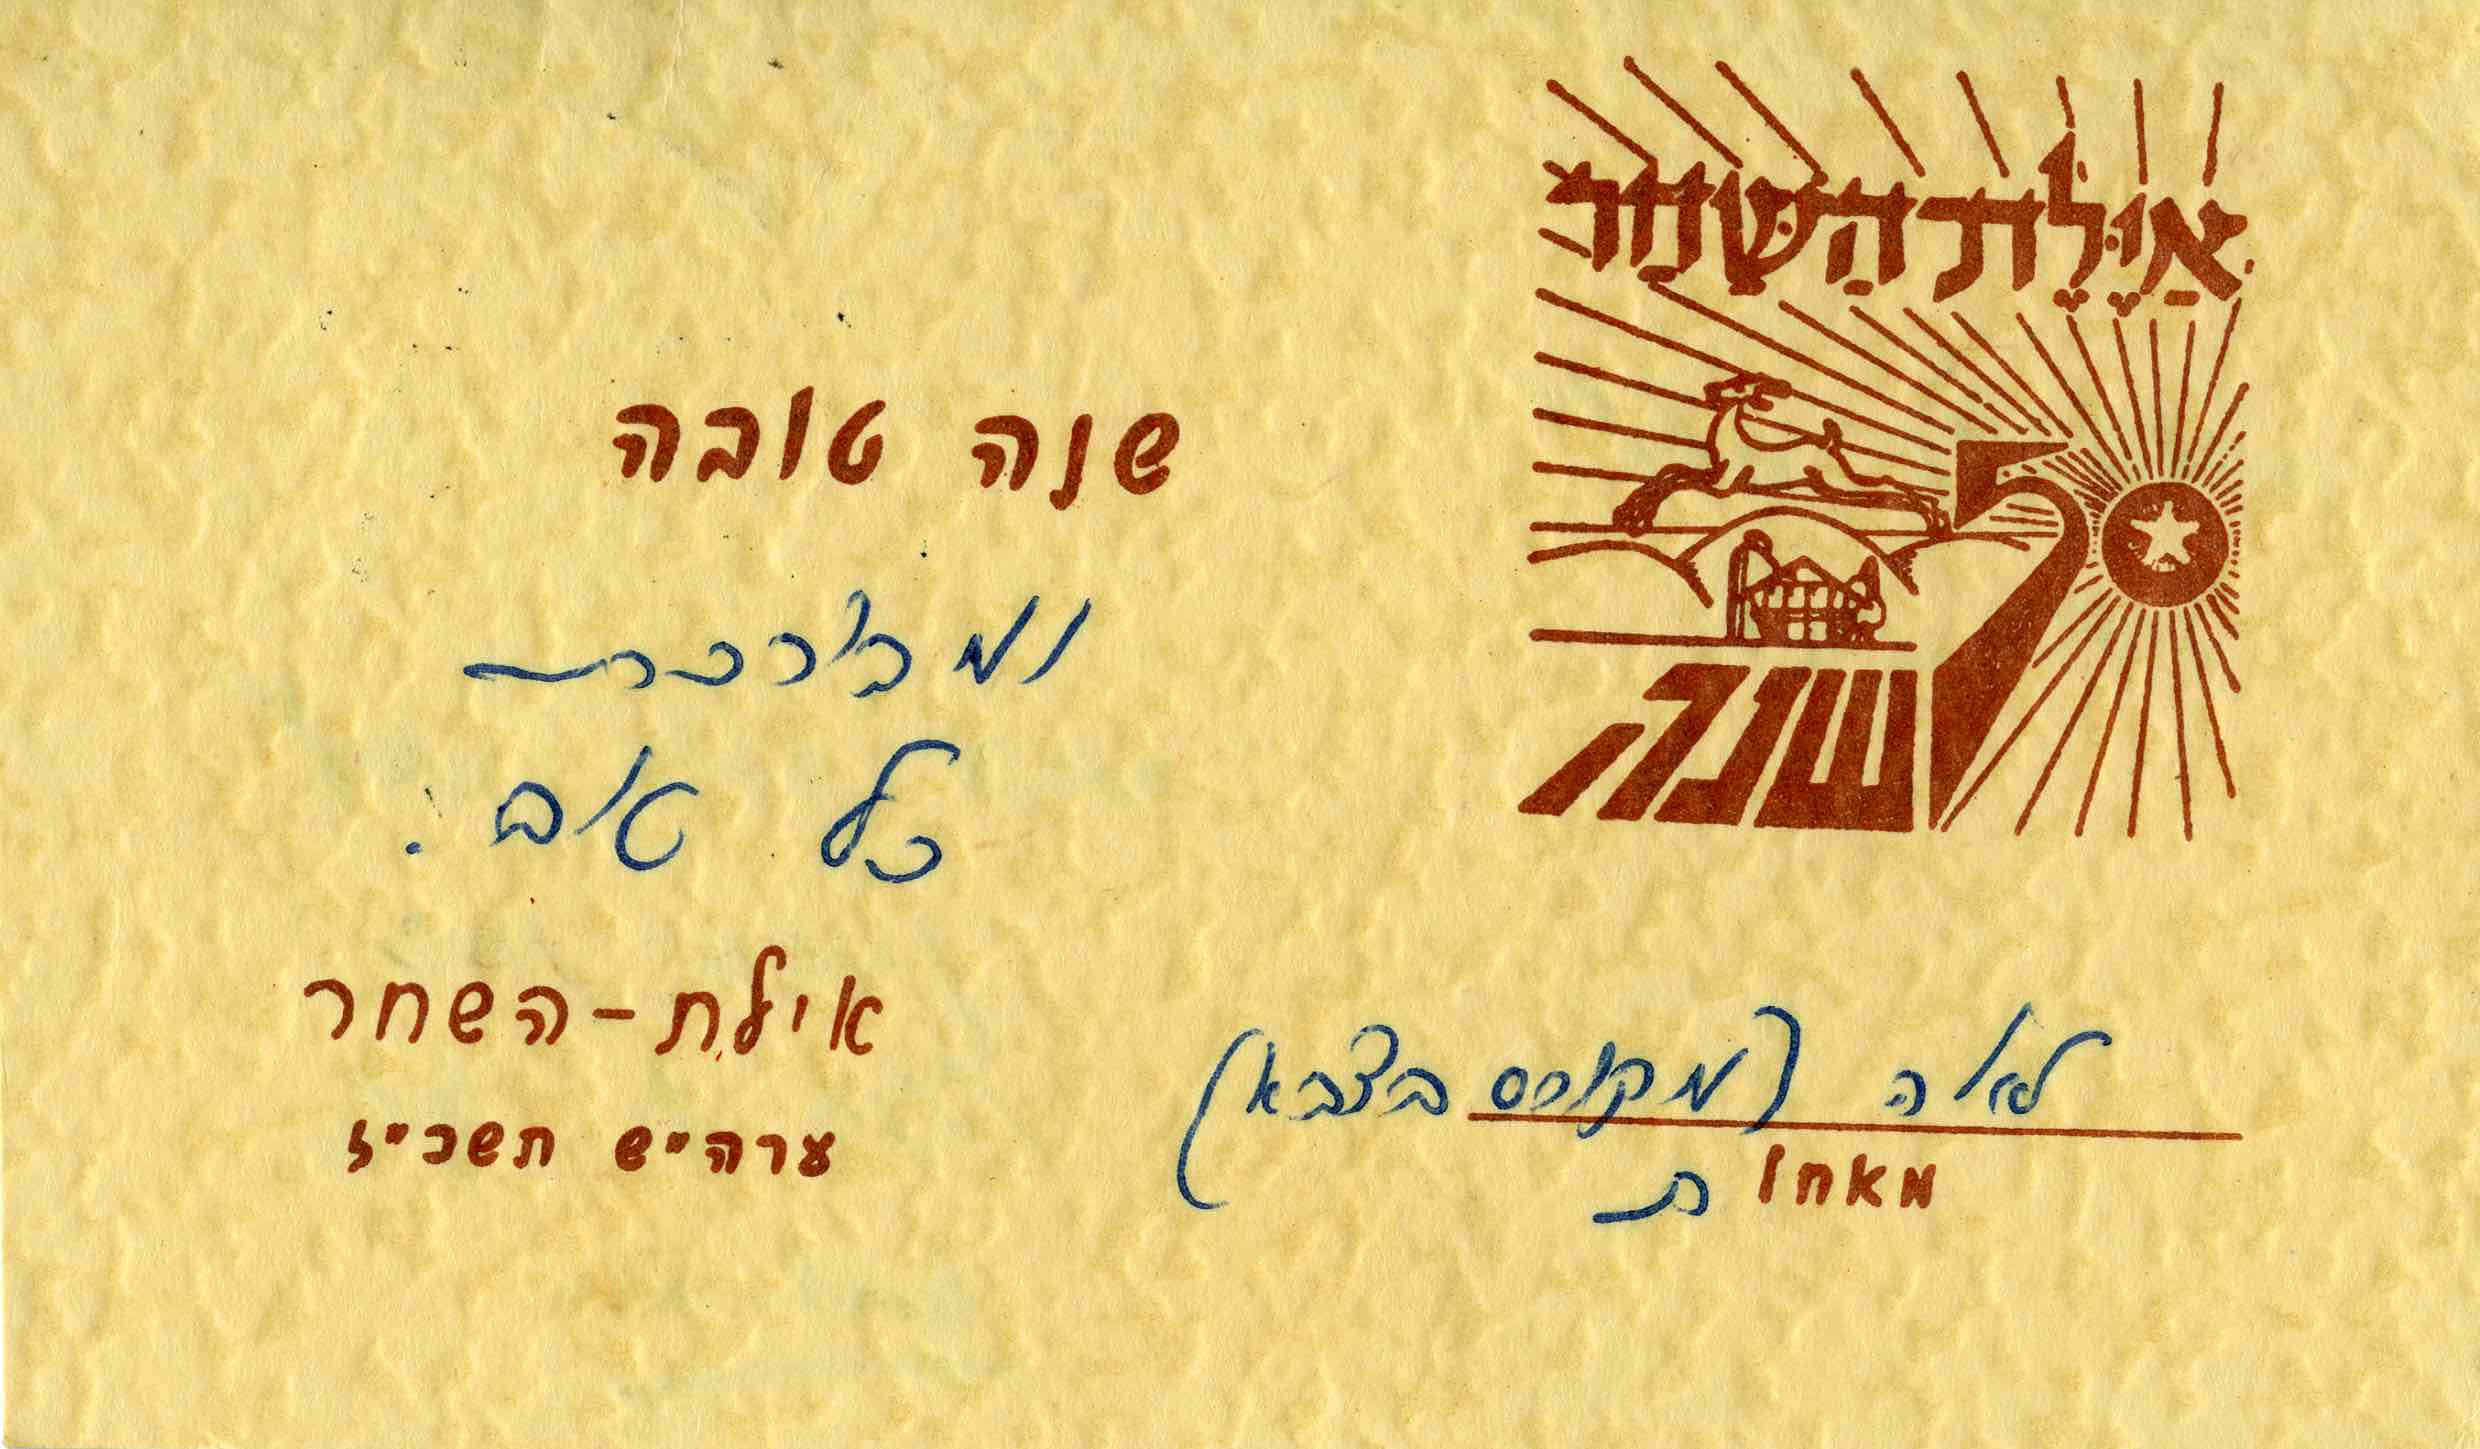 אַיֶּלֶת הַשַּׁחַר
50 שנה
שנה טובה
ומבורכת
כל טוב.
אילת-השחר
ערה"ש תשכ"ז
לאה (מקורס בצבא)
מאחות